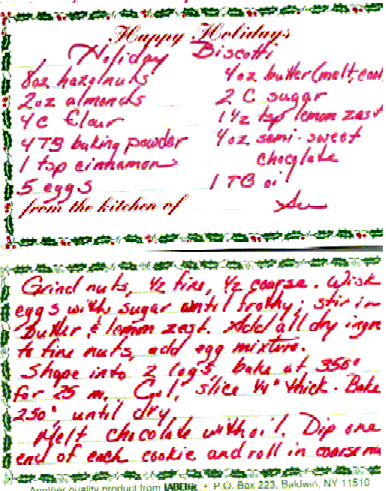 Happy Holidays
Holiday Biscotti
8oz hazelnuts
2oz almonds
4C flour
4 TB baking powder
1 tsp cinnamon
5 eggs
4oz butter (melt, cool
2 C sugar
1½ tsp lemon zest
4oz semi-sweet
chocolate
1 TB oil
from the kitchen of Sue
Grind nuts, ½ fine, ½ coarse. Wisk
eggs with sugar until frothy; stir in
butter & lemon zest. Add all dry ingre
to fine nuts, add egg mixture.
Shape into 2 logs bake at 350°
for 25 m. Cool, slice ¼" thick. Bake
250° until dry
Melt chocolate with oil. Dip one
end of each cookie and roll in coarse nu
Another quality product from LABELS • P.O. Box 223, Baldwin, NY 11510